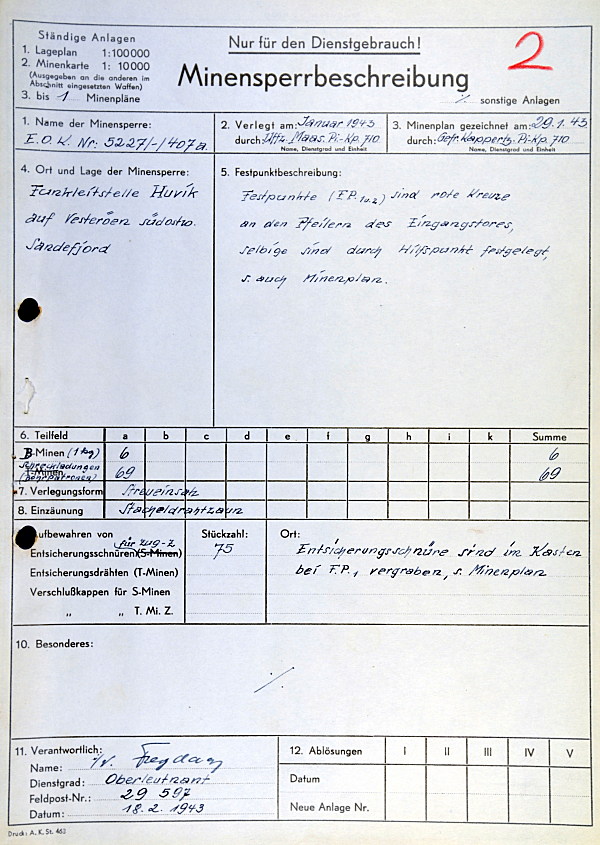 Ständige Anlagen
1. Lageplan 1:100 000
2. Minenkarte 1: 10 000
(Ausgegeben an die anderen im
Abschnitt eingesetzten Waffen)
3. bis 1 Minenpläne
Nur für den Dienstgebrauch!
Minensperrbeschreibung
2
·/. sonstige Anlagen
1. Name der Minensperre:
E.O.K. Nr: 5227/-/407a
2. Verlegt am: Januar 1943
durch: Uffz. Maas. Pi-Kp. 710
Name, Dienstgrad und Einheit
3. Minenplan gezeichnet am: 29.1.43
durch: Gefr. Kappertz. Pi-Kp. 710
Name, Dienstgrad und Einheit
4. Ort und Lage der Minensperre:
Funkleitstelle Huvik
auf Vesteröen südostw.
Sandefjord
5. Festpunktbeschreibung:
Festpunkte (F.P. 1u.2) sind rote Kreuze
an den Pfeilern des Eingangstores,
selbige sind durch Hilfspunkt festgelegt,
s. auch Minenplan.
6. Teilfeld a b c d e f g h i k Summe
B-Minen (1 kg) 6 6
T-Minen 69 69
7. Verlegungsform Streueinsatz
8. Einzäunung Stacheldrahtzaun
Aufbewahren von Stückzahl: Ort:
für Zug-Z
Entsicherungsschnüren (S-Minen) 75 Entsicherungsschnüre sind im Kasten
bei F.P.1 vergraben, s. Minenplan
Entsicherungsdrähten (T-Minen)
Verschlußkappen für S-Minen
„ „ T. Mi. Z.
10. Besonderes:
·/.
11. Verantwortlich:
Name:
Dienstgrad: Oberleutnant
Feldpost-Nr.: 29 597
Datum: 18.2.1943
12. Ablösungen I II III IV V
Datum
Neue Anlage Nr.
Druck: A. K. St. 463